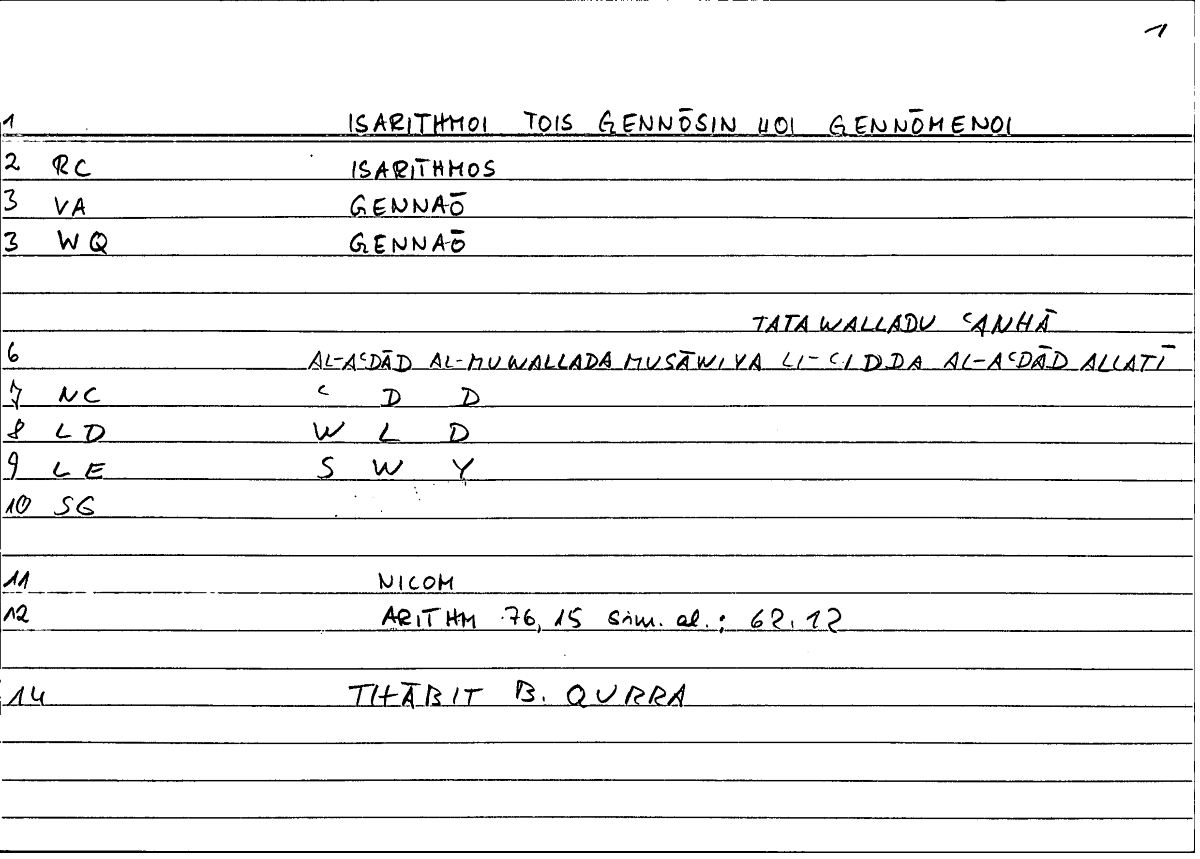 1
1 ISARITHMOI TOIS GENNŌSIN HOI GENNŌMENOI
2 RC ISARITHMOS
3 VA GENNAŌ
3 WQ GENNAŌ
TATAWALLADU ʿANHĀ
6 AL-AʿDĀD AL-MUWALLADA MUSĀWIYA LI-ʿIDDA AL-AʿDĀD ALLATĪ
7 NC ʿ D D
8 LD W L D
9 LE S W Y
10 SG
11 NICOM
12 ARITHM 76,15 sim. al.: 62.12
14 THĀBIT B. QURRA